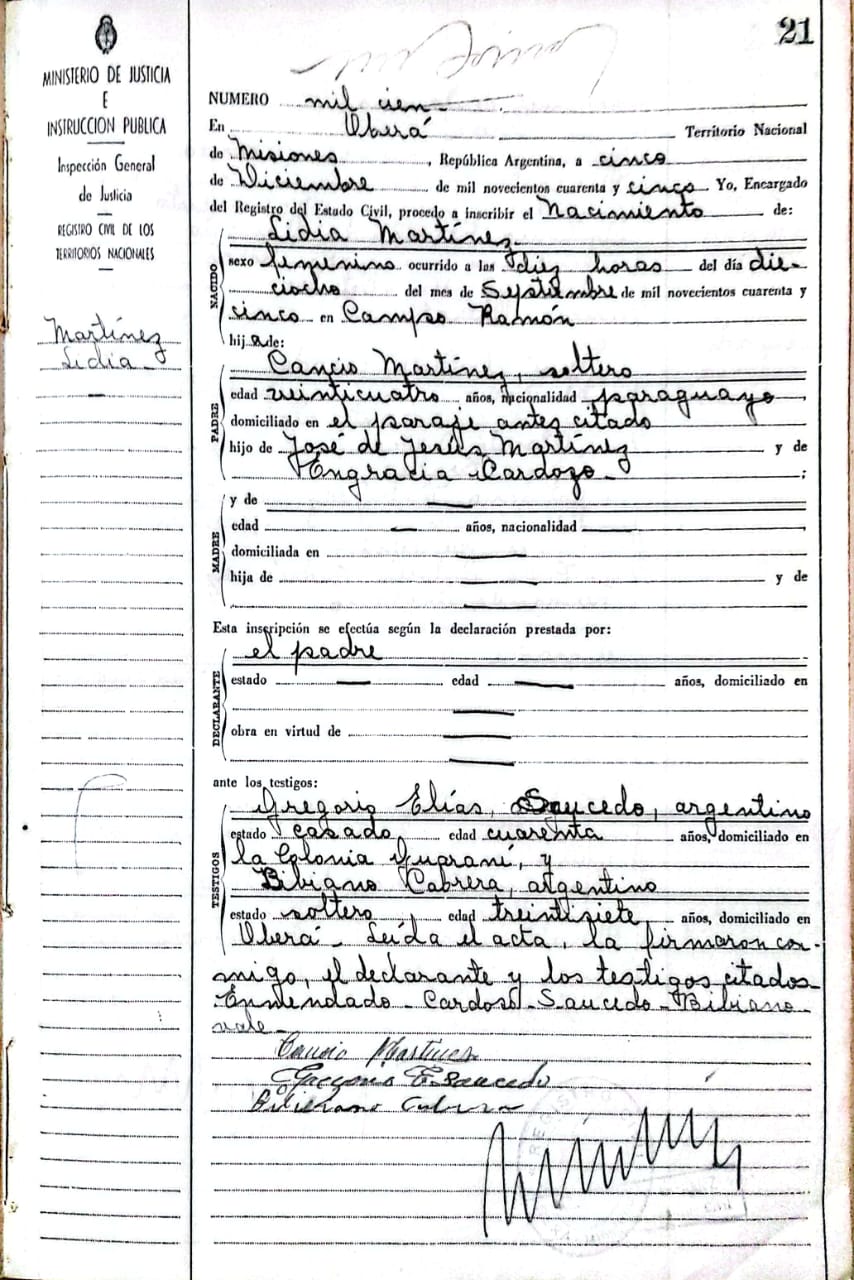 21
MINISTERIO DE JUSTICIA
E
INSTRUCCION PUBLICA
Inspección General
de Justicia
REGISTRO CIVIL DE LOS
TERRITORIOS NACIONALES
Martínez
Lidia
NUMERO mil cien
En Oberá Territorio Nacional
de Misiones, República Argentina, a cinco
de Diciembre de mil novecientos cuarenta y cinco Yo, Encargado
del Registro del Estado Civil, procedo a inscribir el Nacimiento de:
NACIDO
Lidia Martínez
sexo femenino ocurrido a las diez horas del día die-
ciocho del mes de Septiembre de mil novecientos cuarenta y
cinco en Campo Ramón
hija de:
PADRE
Cancio Martínez, soltero
edad veinticuatro años, nacionalidad paraguayo,
domiciliado en el paraje antes citado
hijo de José de Jesús Martínez y de
Engracia Cardozo ;
MADRE
y de
edad años, nacionalidad
domiciliada en
hija de y de
Esta inscripción se efectúa según la declaración prestada por:
DECLARANTE
el padre
estado edad años, domiciliado en
obra en virtud de
ante los testigos:
TESTIGOS
Gregorio Elías, Saucedo, argentino
estado casado edad cuarenta años, domiciliado en
la Colonia Guaraní, y
Bibiano Cabrera, argentino
estado soltero edad treintisiete años, domiciliado en
Oberá - Leída el acta, la firmaron con-
migo, el declarante y los testigos citados
Enmendado - Cardoso - Saucedo - Bibiano
vale -
Cancio Martínez
Gregorio E. Saucedo
Bibiano Cabrera
REGISTRO